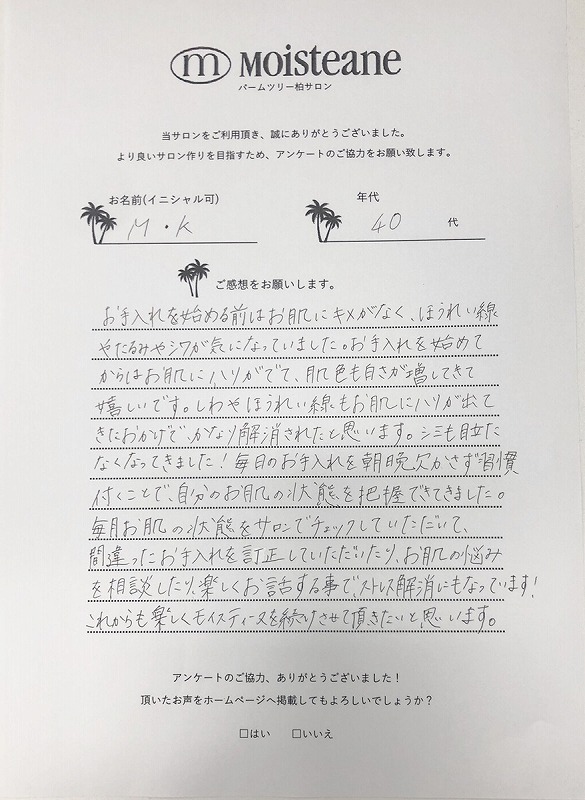 m Moisteane
パームツリー柏サロン
当サロンをご利用頂き、誠にありがとうございました。
より良いサロン作りを目指すため、アンケートのご協力をお願い致します。
お名前(イニシャル可) 年代
M・K 40 代
ご感想をお願いします。
お手入れを始める前はお肌にキメがなく、ほうれい線
やたるみやシワが気になっていました。お手入れを始めて
からはお肌にハリがでて、肌色も白さが増してきて
嬉しいです。しわやほうれい線もお肌にハリが出て
きたおかげで、かなり解消されたと思います。シミも目立た
なくなってきました！毎日のお手入れを朝晩欠かさず習慣
付くことで、自分のお肌の状態を把握できてきました。
毎月お肌の状態をサロンでチェックしていただいて、
間違ったお手入れを訂正していただいたり、お肌の悩み
を相談したり、楽しくお話する事で、ストレス解消にもなっています！
これからも楽しくモイスティーヌを続けさせて頂きたいと思います。
アンケートのご協力、ありがとうございました！
頂いたお声をホームページへ掲載してもよろしいでしょうか？
□はい □いいえ